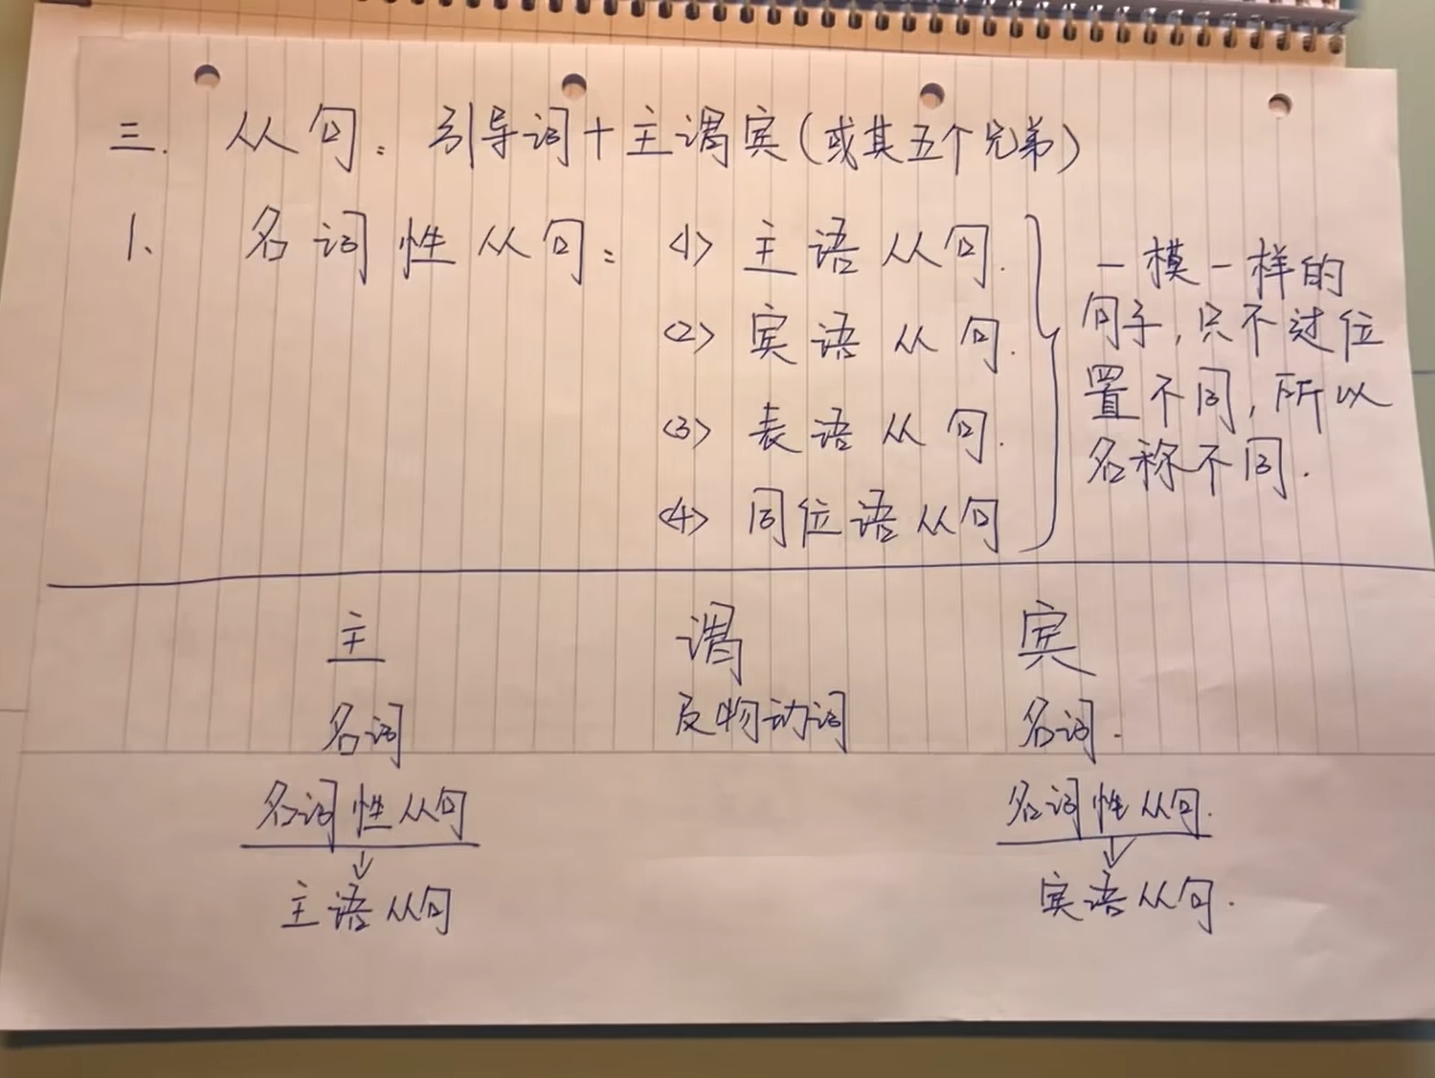 三. 从句: 引导词+主谓宾(或其五个兄弟)
1、 名词性从句: <1> 主语从句.
<2> 宾语从句.
<3> 表语从句.
<4> 同位语从句
一模一样的
句子,只不过位
置不同,所以
名称不同.
主 谓 宾
名词 及物动词 名词.
名词性从句 名词性从句.
↓ ↓
主语从句 宾语从句.